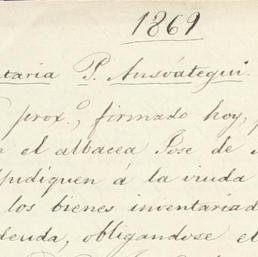 1869
taria P. Ansoategui.
prox.o, firmado hoy,
n el albacea Jose de
judiquen á la viuda
los bienes inventariad
deuda, obligandose el